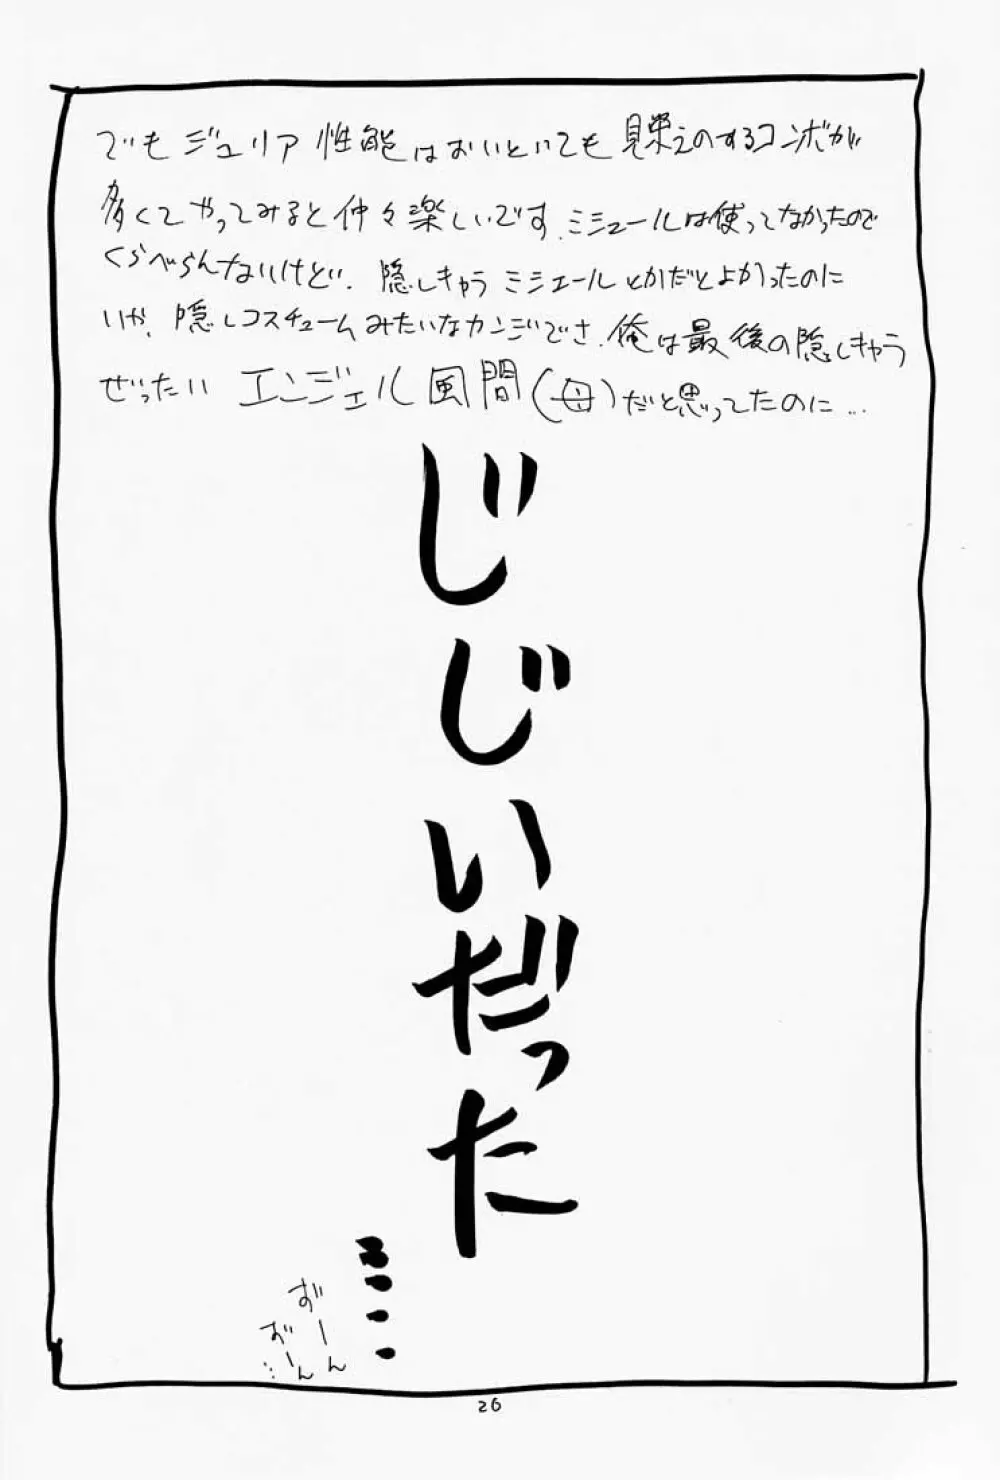 でもジュリア性能はおいといても見栄えのするコンボが
多くてやってみると仲々楽しいです。ミシェールは使ってなかったので
くらべらんないけど。隠しきゃうミシェールとかだとよかったのに
いか。隠しコスチュームみたいなカンジでさ。俺は最後の隠しきゃら
ぜったいエンジェル風間(母)だと思ってたのに…
じじいだった
ずーん
おーん…
26